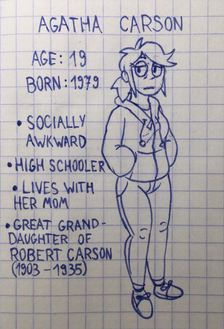 AGATHA CARSON
AGE: 19
BORN: 1979
• SOCIALLY
AWKWARD
• HIGH SCHOOLER
• LIVES WITH
HER MOM
• GREAT GRAND-
DAUGHTER OF
ROBERT CARSON
(1903-1935)